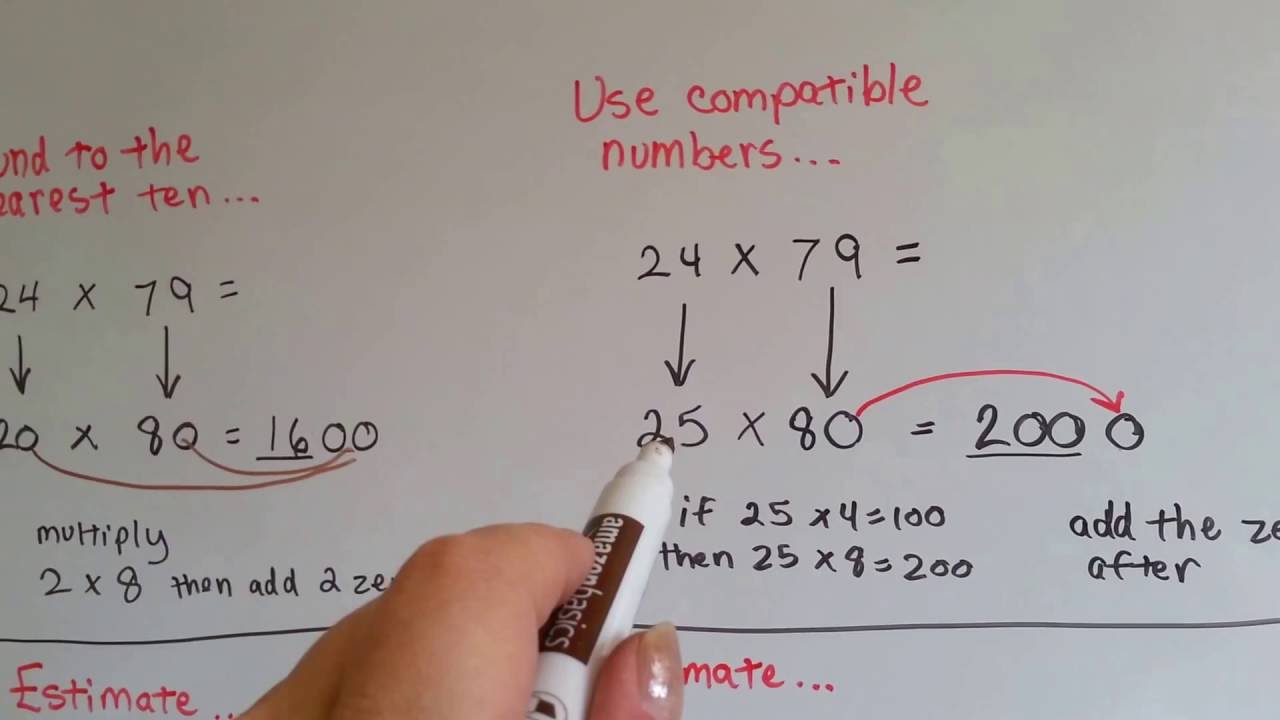 und to the
earest ten...
24 x 79 =
20 x 80 = 1600
multiply
2 x 8 then add 2 ze
Estimate..
Use compatible
numbers...
24 x 79 =
25 x 80 = 2000
if 25 x 4 = 100
then 25 x 8 = 200
add the ze
after
mate...
amazonbasics